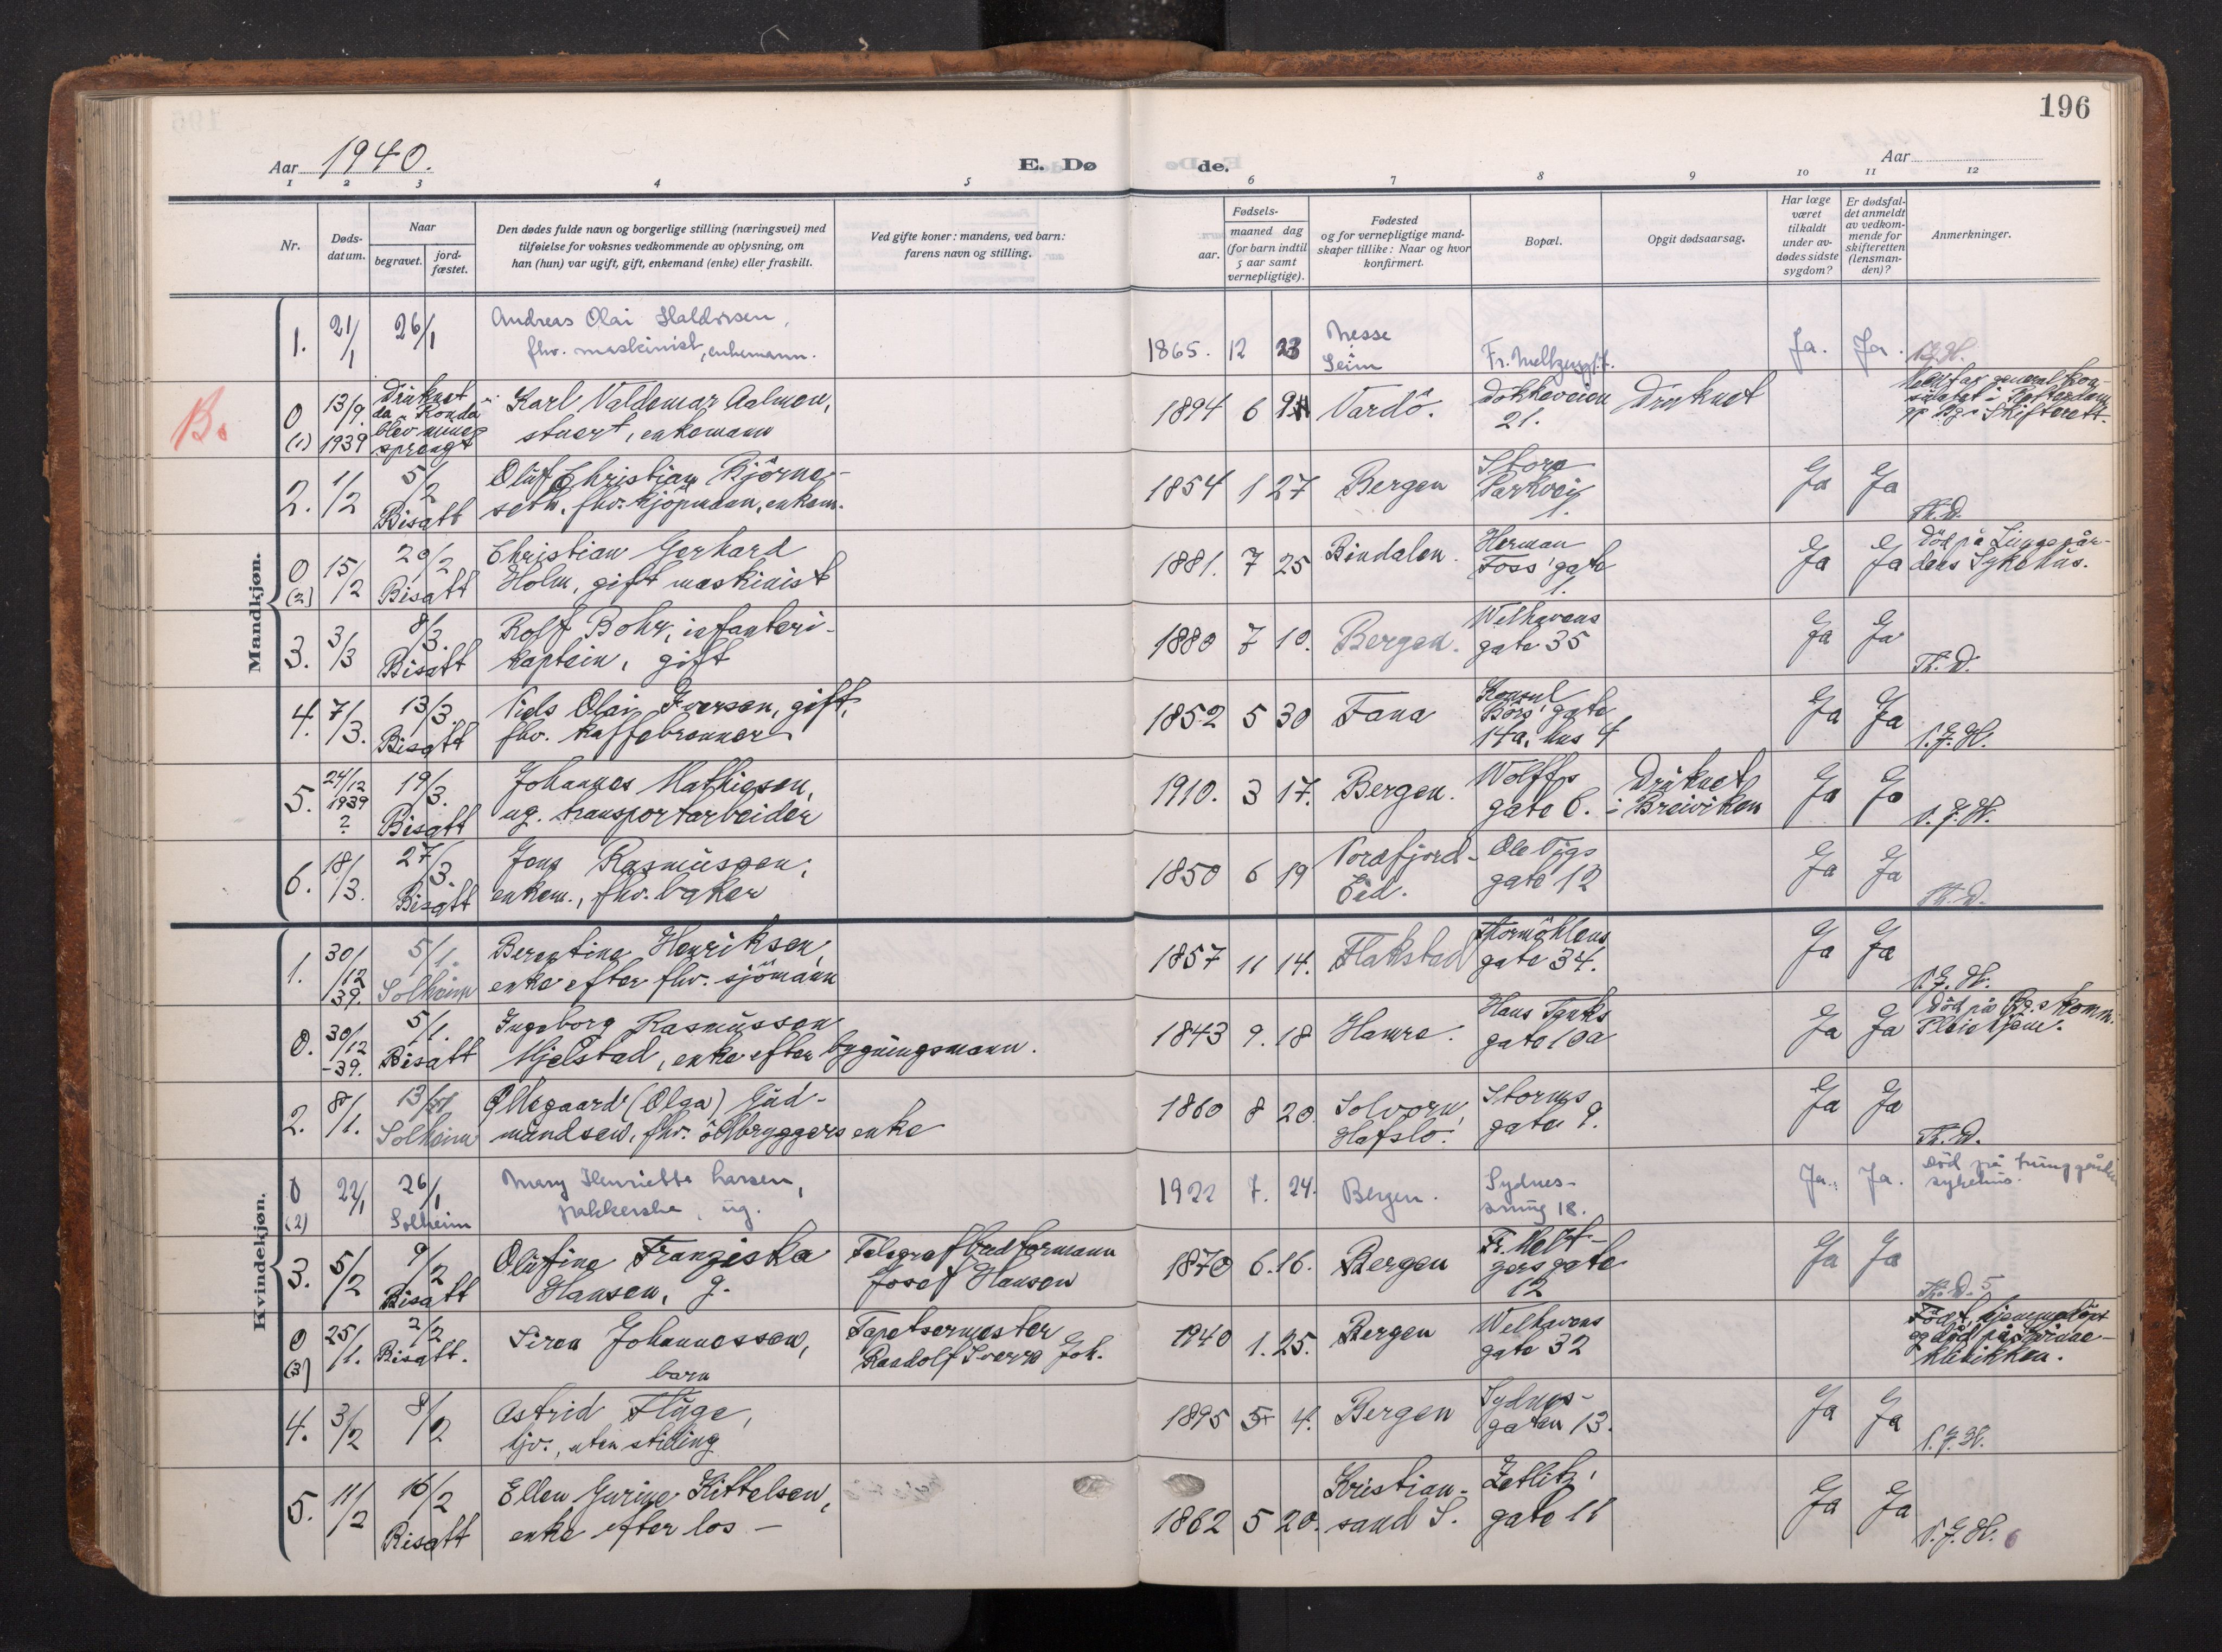 196
Aar 1940.
E. Døde.
Aar
1 2 3 4 5 6 7 8 9 10 11 12
Nr.
Døds-
datum.
Naar
begravet.
jord-
fæstet.
Den dødes fulde navn og borgerlige stilling (næringsvei) med
tilføielse for voksnes vedkommende av oplysning, om
han (hun) var ugift, gift, enkemand (enke) eller fraskilt.
Ved gifte koner: mandens, ved barn:
farens navn og stilling.
Fødsels-
aar.
maaned dag
(for barn indtil
5 aar samt
vernepligtige).
Fødested
og for vernepligtige mand-
skaper tillike: Naar og hvor
konfirmert.
Bopæl.
Opgit dødsaarsag.
Har læge
været
tilkaldt
under av-
dødes sidste
sygdom?
Er dødsfal-
det anmeldt
av vedkom-
mende for
skifteretten
(lensman-
den)?
Anmerkninger.
Mandkjøn.
1. 21/1 26/1 Andreas Olai Haldorsen,
fhv. maskinist, enkemann.
1865. 12 23 Hesse
Seim
Ja. Ja.
B.
0 (1) 13/9 1939 Druknet
da Ronda
blev mine-
sprengt
Karl Valdemar Aalmen,
stuert, enkemann
1894 6 Vardö. Dokkeveien
21.
Druknet
Skifterett.
2. 1/2 5/2
Bisatt
Oluf Christian Björne-
seth, fhv. kjöpmann, enkem.
1854 1 27 Bergen Store
Parkvei
1. Ja Ja Th. D.
0 (2) 15/2 20/2
Bisatt
Christian Gerhard
Holm, gift maskinist
1881. 7 25 Bindalen. Herman
Foss' gate
1. Ja Ja Död på Lungegår-
dens Sykehus.
3. 3/3 8/3.
Bisatt
Rolf Bohr, infanteri-
kaptein, gift
1880 7 10. Bergen. Welhavens
gate 35
Ja Ja Th. D.
4. 7/3. 13/3.
Bisatt
Nils Olai Iversen, gift,
fhv. kaffebrenner
1852 5 30 Fana Konsul
Börs' gate
14a, hus 4
Ja Ja
5. 24/12 1939 ? 19/3.
Bisatt
Johannes Mathiesen,
ug. transportarbeider
1910. 3 17. Bergen. Wolffs
gate 6.
Druknet
i Breiviken
Ja Ja
6. 18/3. 27/3.
Bisatt
Jens Rasmussen,
enkem., fhv. baker
1850 6 19 Nordfjord-
Eid.
Ole Vigs
gate 12
Ja Ja Th. D.
Kvindekjøn.
1. 30/12 39. 5/1.
Solheim
Berentine Henriksen,
enke efter fhv. sjömann
1857 11 14. Flakstad Thormöhlens
gate 34.
Ja Ja
0. 30/12 -39. 5/1.
Bisatt
Ingeborg Rasmussen
Mjelstad, enke efter bygningsmann.
1843 9. 18 Hamre. Hans Tanks
gate 10a
Ja Ja Död på Bg.s komm.
Pleiehjem.
2. 8/1. 13/1
Solheim
Ollegaard (Olga) Gud-
mundsen, fhv. ölbryggers enke
1860 8 20. Solvorn
Hafslo.
Storms
gate 9.
Ja Ja Th. D.
0 (2) 22/1 26/1
Solheim
Mary Henriette Larsen,
pakkerske, ug.
1922 7. 24. Bergen. Sydnes-
smug 18.
Ja. Ja. Död på Lunggårds
sykehus.
3. 5/2 9/2
Bisatt
Olufine Franziska
Hansen, g.
Telegrafbudformann
Josef Hansen
1870 6. 16. Bergen Fr. Melt-
zers gate
12
Ja Ja Th. D. 5
0 (3) 25/1. 2/2
Bisatt.
Siren Johannessen,
barn
Tapetsermester
Randolf Sverre Joh.
1940 1. 25. Bergen Welhavens
gate 32
Födt, hjemmedöpt
og död på Kvinne-
klinikken.
4. 3/2 8/2
Astrid Fluge,
fhv., uten stilling
1895 5 4. Bergen Sydnes-
gaten 13.
Ja Ja
5. 11/2 16/2
Bisatt
Ellen Gurine Kittelsen,
enke efter los –
1862 5 20. Kristian-
sand S.
Zetlitz'
gate 11
Ja Ja
6